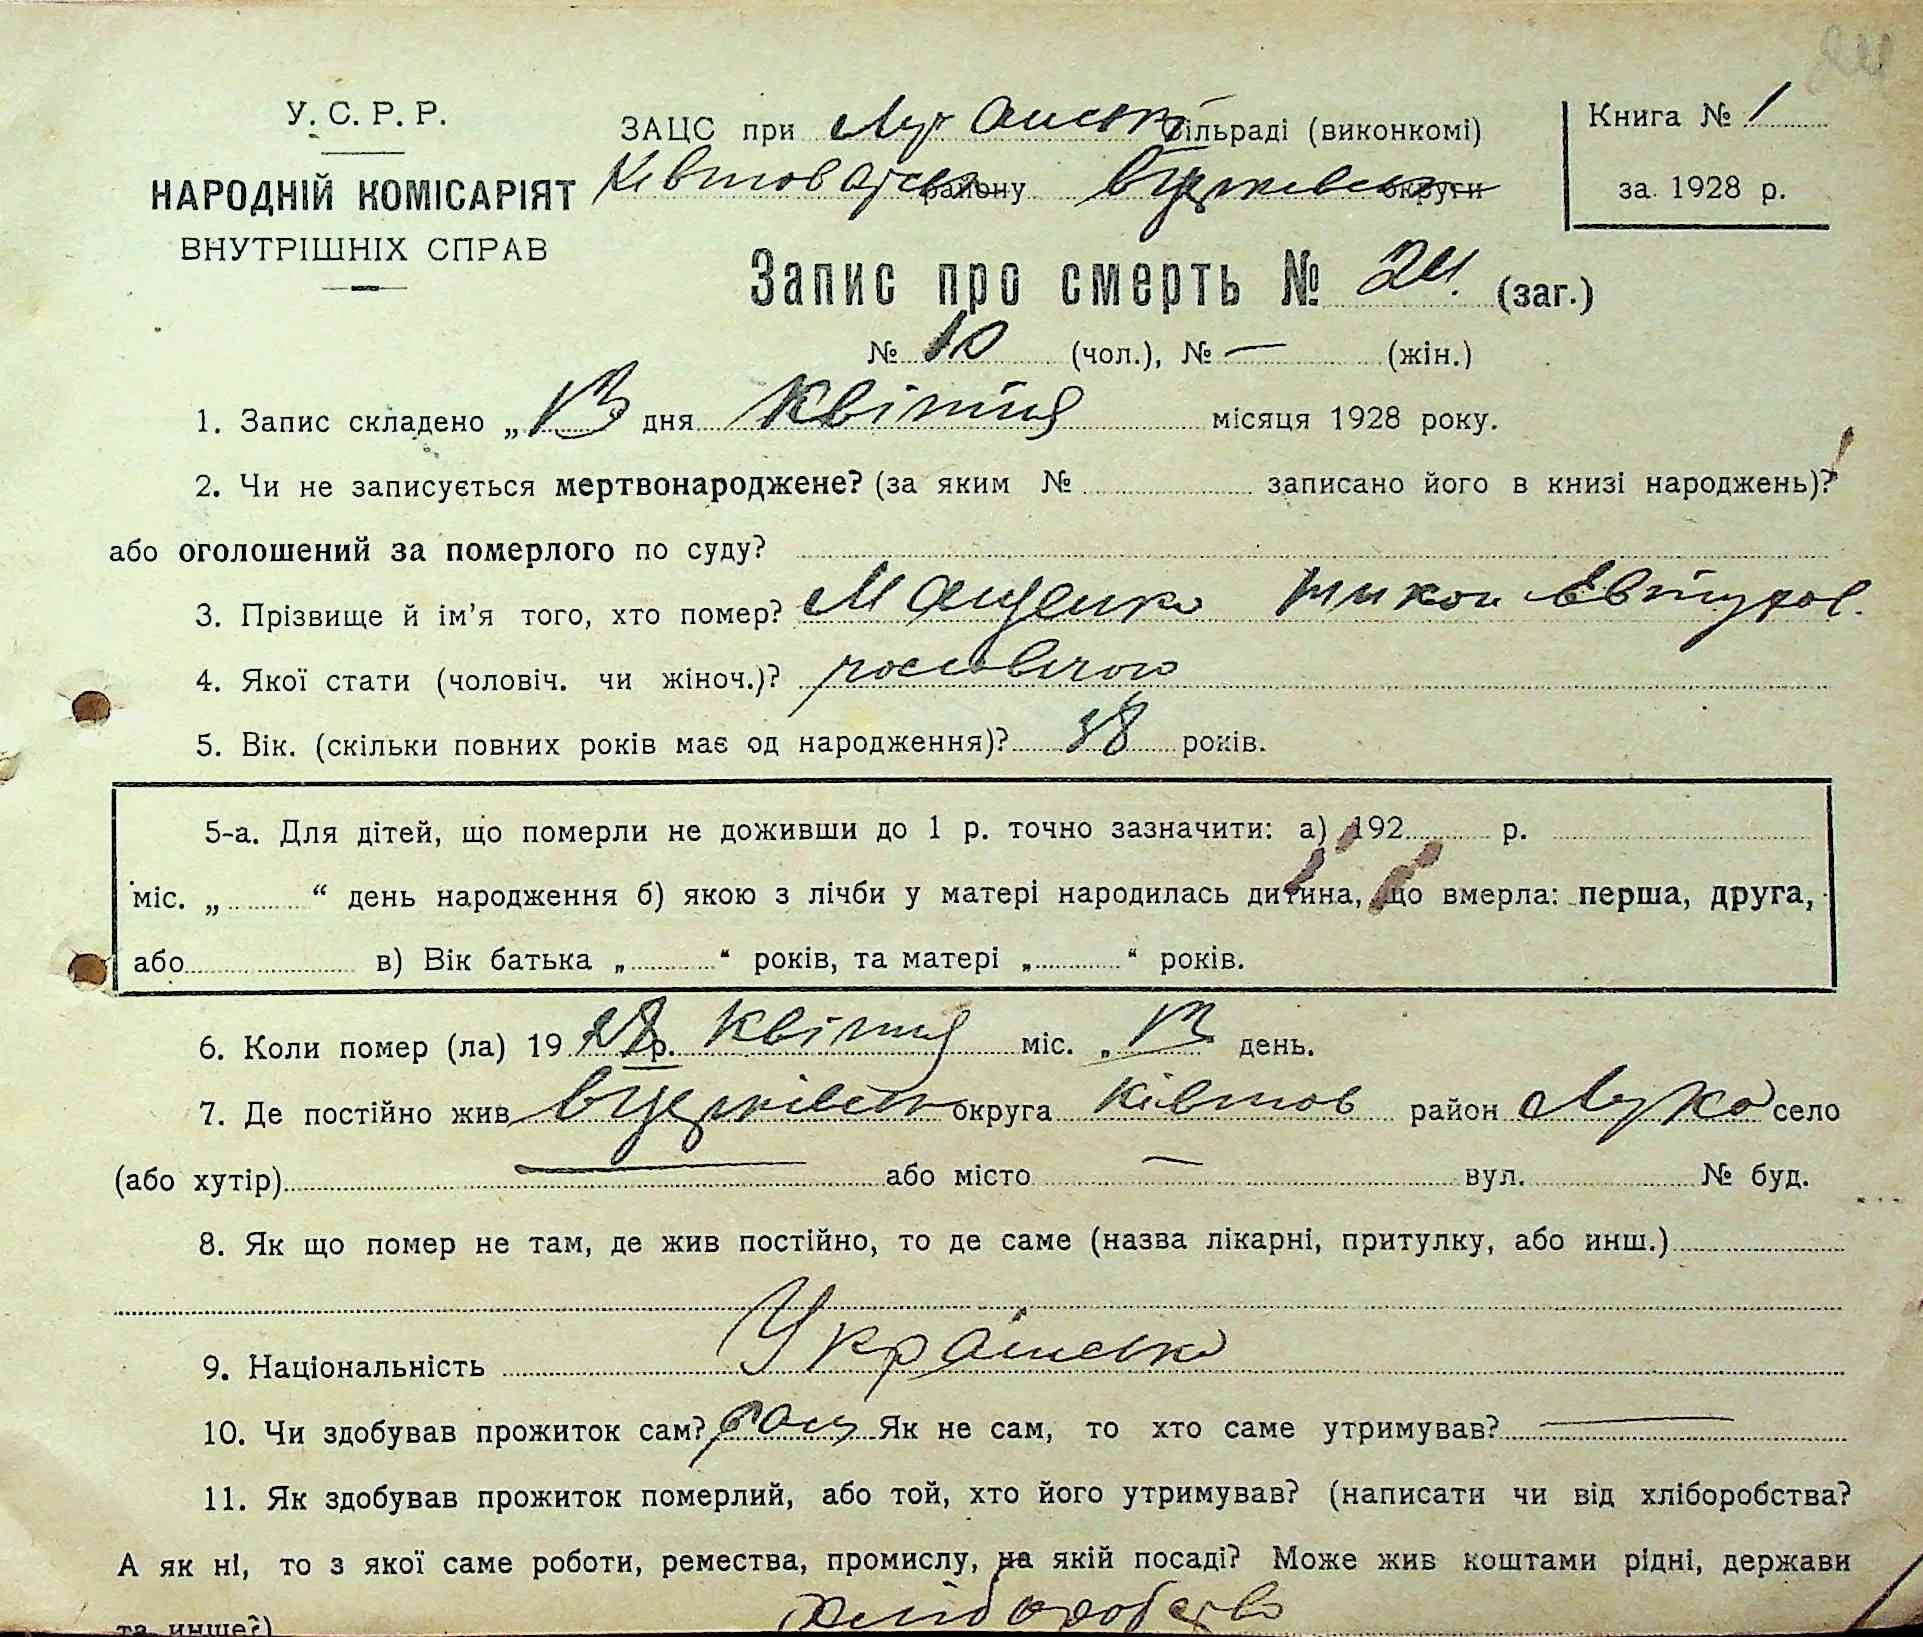 24
У. С. Р. Р.
НАРОДНІЙ КОМІСАРІЯТ
ВНУТРІШНІХ СПРАВ
ЗАЦС при сільраді (виконкомі)
району округи
Книга № 1
за 1928 р.
Запис про смерть № 24. (заг.)
№ 10 (чол.), № — (жін.)
1. Запис складено „13" дня Квітня місяця 1928 року.
2. Чи не записується мертвонароджене? (за яким № записано його в книзі народжень)?
або оголошений за померлого по суду?
3. Прізвище й ім'я того, хто помер? Мащенко
4. Якої стати (чоловіч. чи жіноч.)?
5. Вік. (скільки повних років має од народження)? 38 років.
5-а. Для дітей, що померли не доживши до 1 р. точно зазначити: а) 192 р.
міс. „ “ день народження б) якою з лічби у матері народилась дитина, що вмерла: перша, друга,
або в) Вік батька „ “ років, та матері „ “ років.
6. Коли помер (ла) 1928 р. Квітня міс. „13" день.
7. Де постійно жив округа Ківшов район Лука село
(або хутір) — або місто — вул. № буд.
8. Як що помер не там, де жив постійно, то де саме (назва лікарні, притулку, або инш.)
9. Національність Українська
10. Чи здобував прожиток сам? сам Як не сам, то хто саме утримував? —
11. Як здобував прожиток померлий, або той, хто його утримував? (написати чи від хліборобства?
А як ні, то з якої саме роботи, ремества, промислу, на якій посаді? Може жив коштами рідні, держави
та инше?) хліборобство